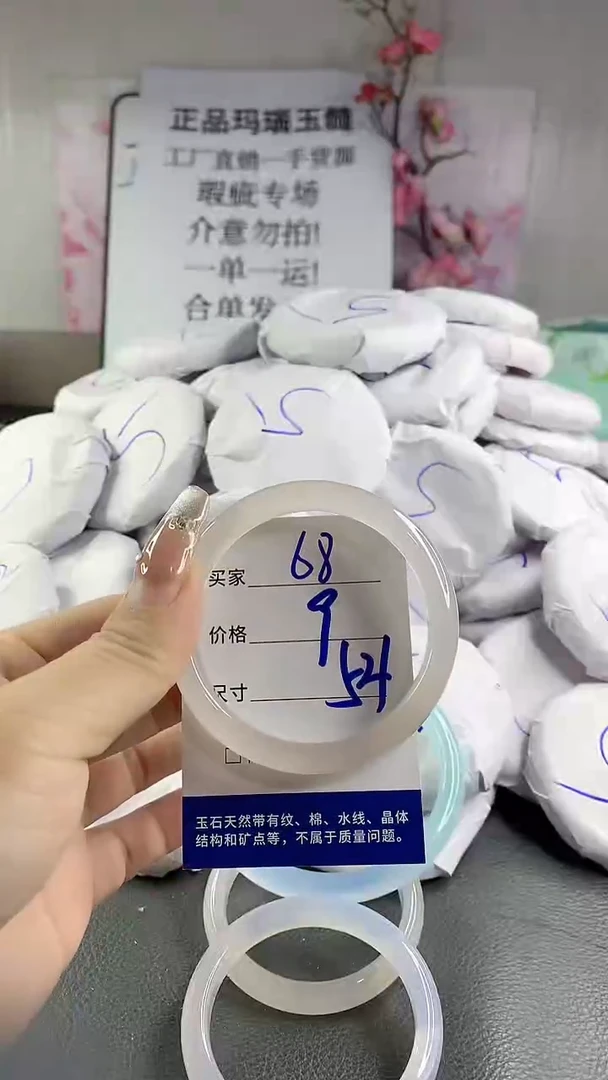 正品玛瑙玉髓
工厂直销一手货源
瑕疵专场
介意勿拍!
一单一运!
合单发
5
5
5
5
买家 68
价格 9
尺寸 54
玉石天然带有纹、棉、水线、晶体
结构和矿点等，不属于质量问题。